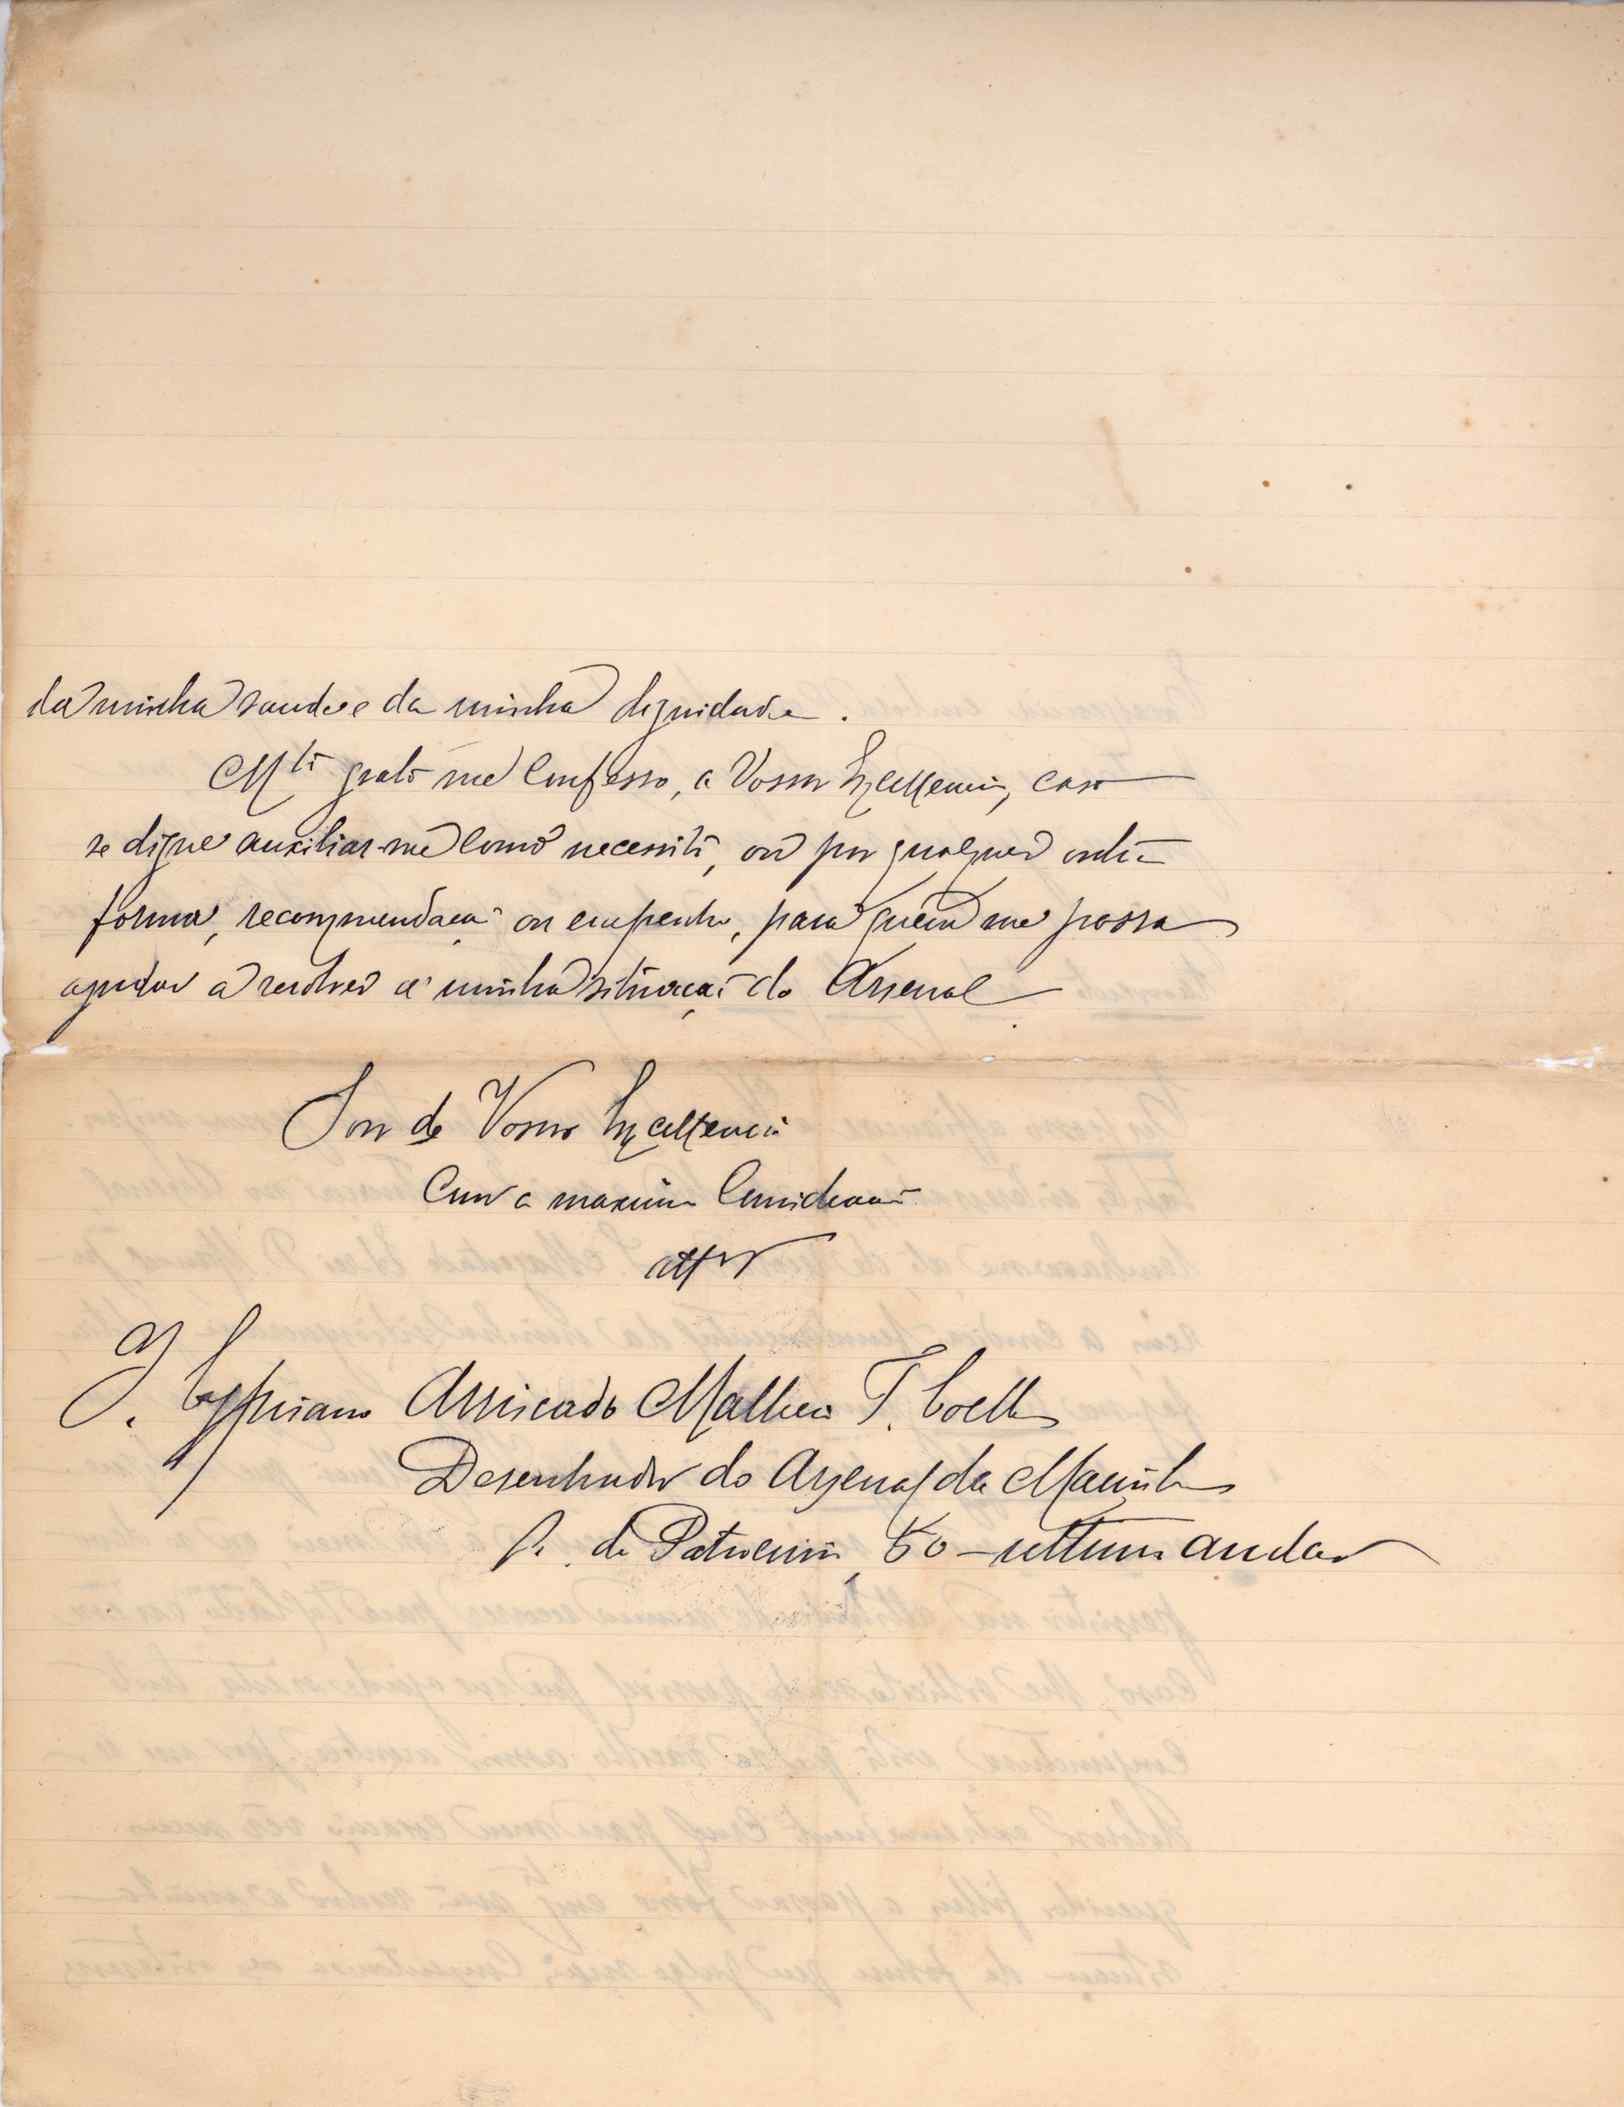 da minha saude e da minha dignidade.
Mto grato me confesso, a Vossa Excellencia, caso
se digne auxiliar-me como necessito, ou por qualquer outra
forma, recommendação ou empenho, para quem me possa
ajudar a resolver a minha situação do Arsenal
Sou de Vossa Excellencia
Com a maxima Consideração
J. Cypriano Arriscado Matheus T. Coelho
Desenhador do Arsenal da Marinha
R. do Patrocinio, 50 – ultimo andar